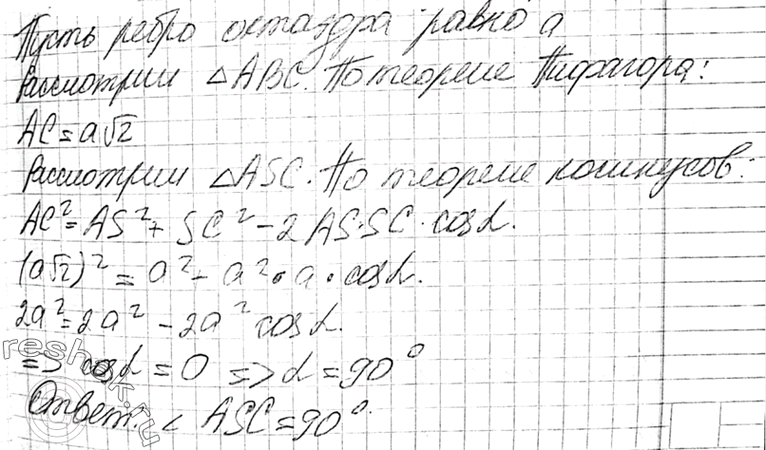 Пусть ребро октаэдра равно a
Рассмотрим △ABC. По теореме Пифагора:
AC = a√2
Рассмотрим △ASC. По теореме косинусов:
AC² = AS² + SC² - 2AS·SC · cosα.
(a√2)² = a² - a² · a · cosα.
2a² = 2a² - 2a² cosα.
=> cosα = 0 => α = 90°
Ответ: < ASC = 90°.
reshak.ru